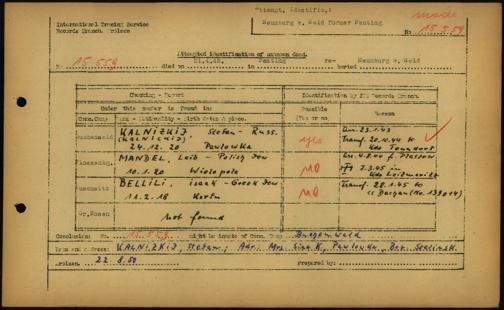 Attempt. Identific.:
Neunburg v. Wald former Penting
International Tracing Service
Records Branch Arolsen
No 15.559
Attempted identification of unknown dead.
No 15 559 died on 21.4.45. in Penting re-buried Neunburg v. Wald
Checking - Report
Identification by ITS Records Branch.
Under this number is found in:
Possible
Reason
Conc.Camp Name - Nationality - Birth date & place.
(Yes or no)
Buchenwald KALNIZKIJ Stefan - Russ.
(KALNICKIJ),
24.12.20 Pawlowka
yes
Arr. 23.1.43
Transf. 20.10.44 to
Kdo Tonndorf
Flossenbg. MANDEL, Leib - Polish Jew
10.1.20 Wielopole
no
Arr. 4.8.44 f. Plaszow
7.3.45 in
Kdo Leitmeritz
Auschwitz BELLILI, isaak - Greek Jew
11.2.18 Korfu
no
Transf. 28.1.45 to
cc Dachau (No 139014)
Gr.Rosen Not found
Conclusion: No. 15.559 might be inmate of Conc. Camp Buchenwald
KALNIZKIJ, Stefan; Adr.
Arolsen, 22.8.50
Prepared by: